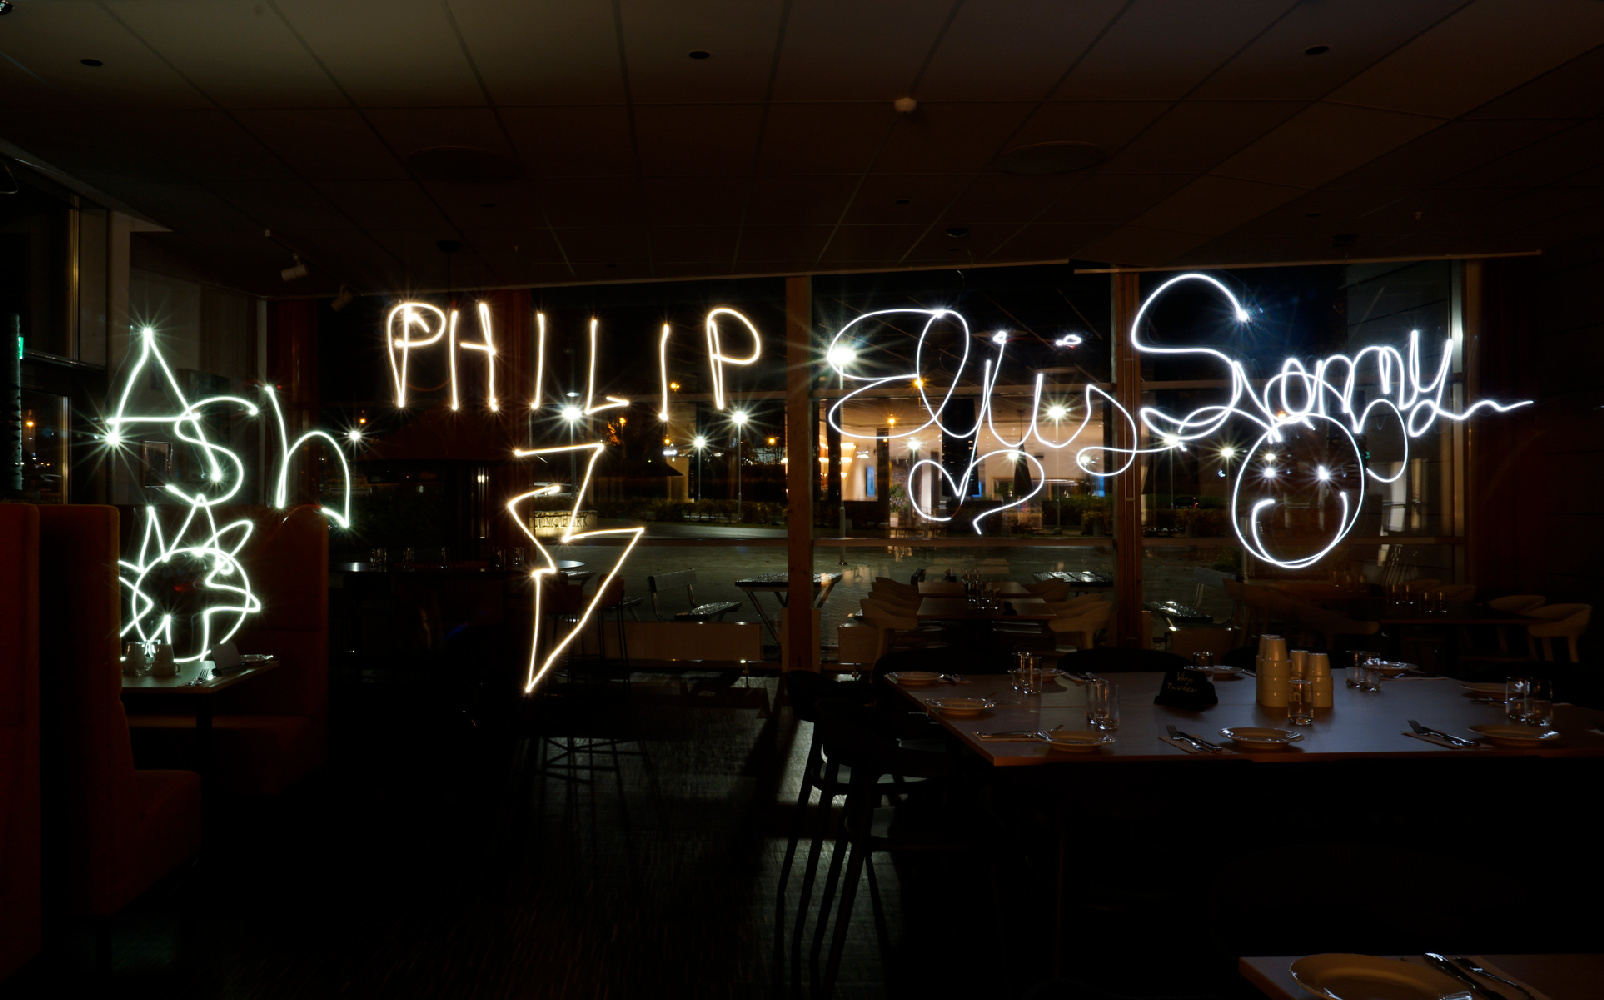 Ash
PHILIP
Elis
Sammy